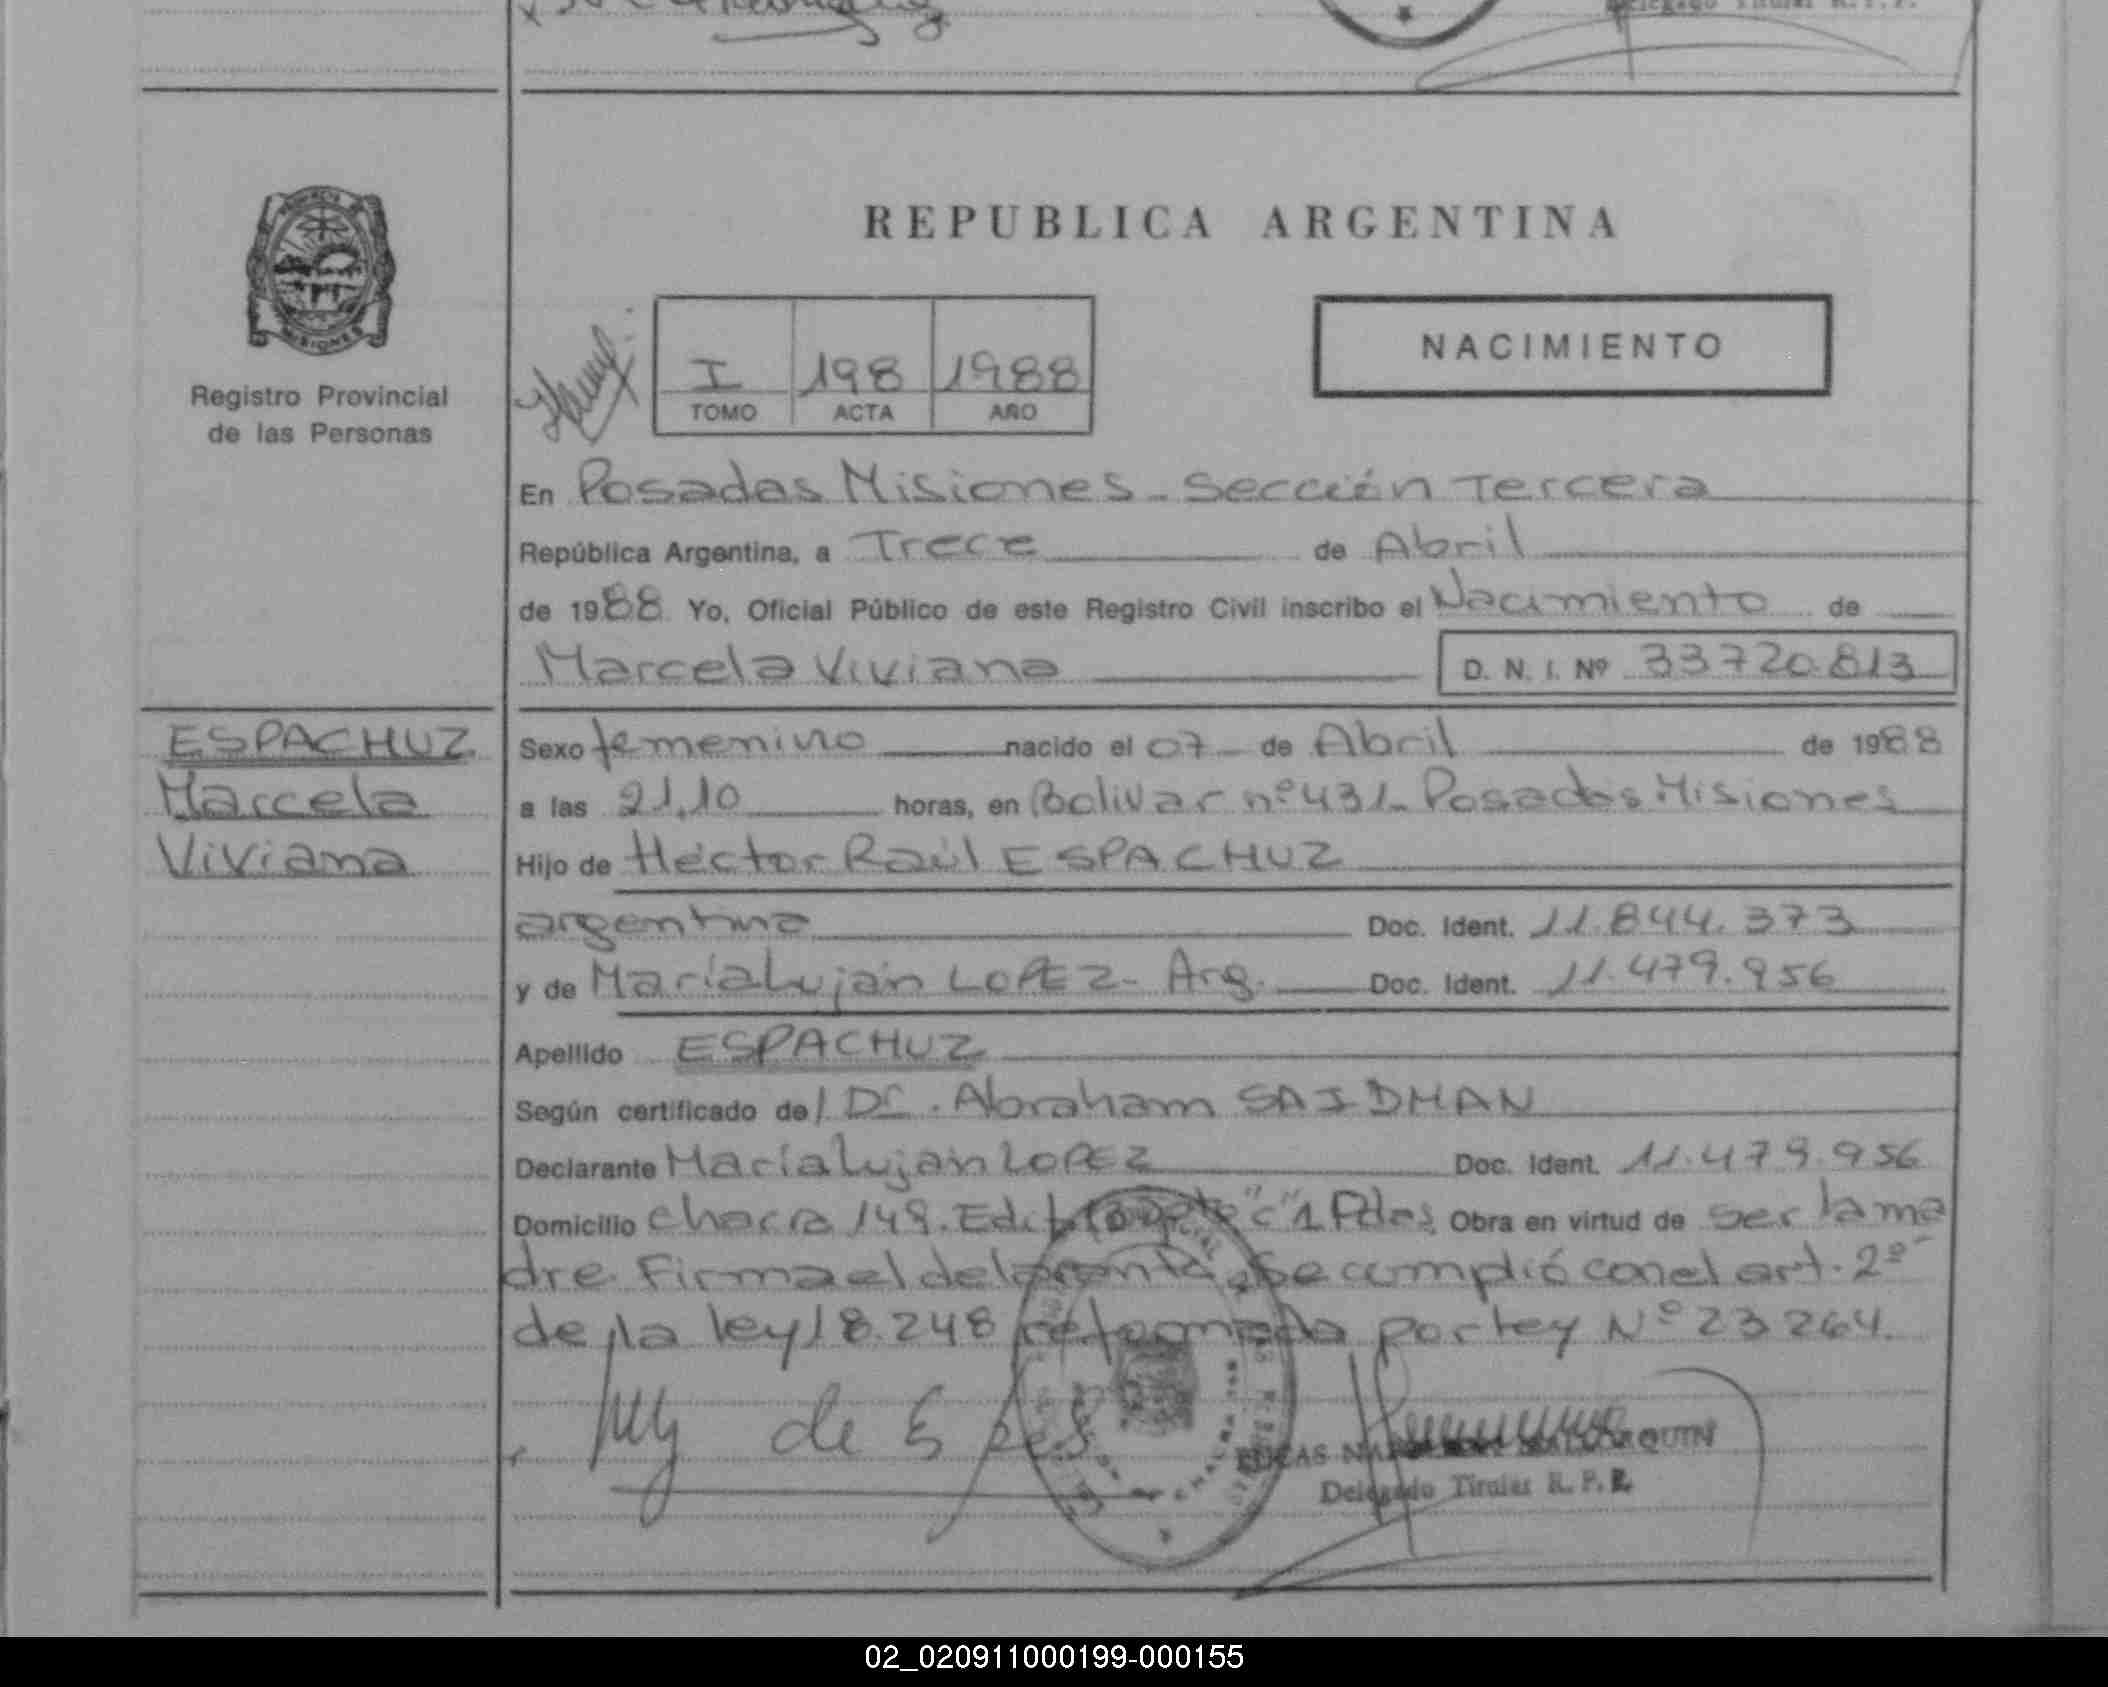 Delegado Titular R.P.P.
REPUBLICA ARGENTINA
MISIONES
Registro Provincial
de las Personas
I 198 1988
TOMO ACTA AÑO
NACIMIENTO
En Posadas Misiones - Sección Tercera
República Argentina, a Trece de Abril
de 1988 Yo, Oficial Público de este Registro Civil inscribo el Nacimiento de
Marcela Viviana D. N. I. Nº 33720.813
ESPACHUZ
Marcela
Viviana
Sexo femenino nacido el 07 de Abril de 1988
a las 21,10 horas, en Bolivar nº 431- Posadas Misiones
Hijo de Héctor Raúl ESPACHUZ
argentina Doc. Ident. 11.844.373
y de María Luján LOPEZ - Arg. Doc. Ident. 11.479.956
Apellido ESPACHUZ
Según certificado del Dr. Abraham SAIDMAN
Declarante María Luján LOPEZ Doc. Ident. 11.479.956
Domicilio Chacra 149. Edif. "c" 1 Pdas. Obra en virtud de ser la ma
dre. Firma el declarante. Se cumplió con el art. 2º
de la ley 18.248 reformada por ley Nº 23264.
de
LUCAS
Delegado Titular R.P.P.
02_020911000199-000155